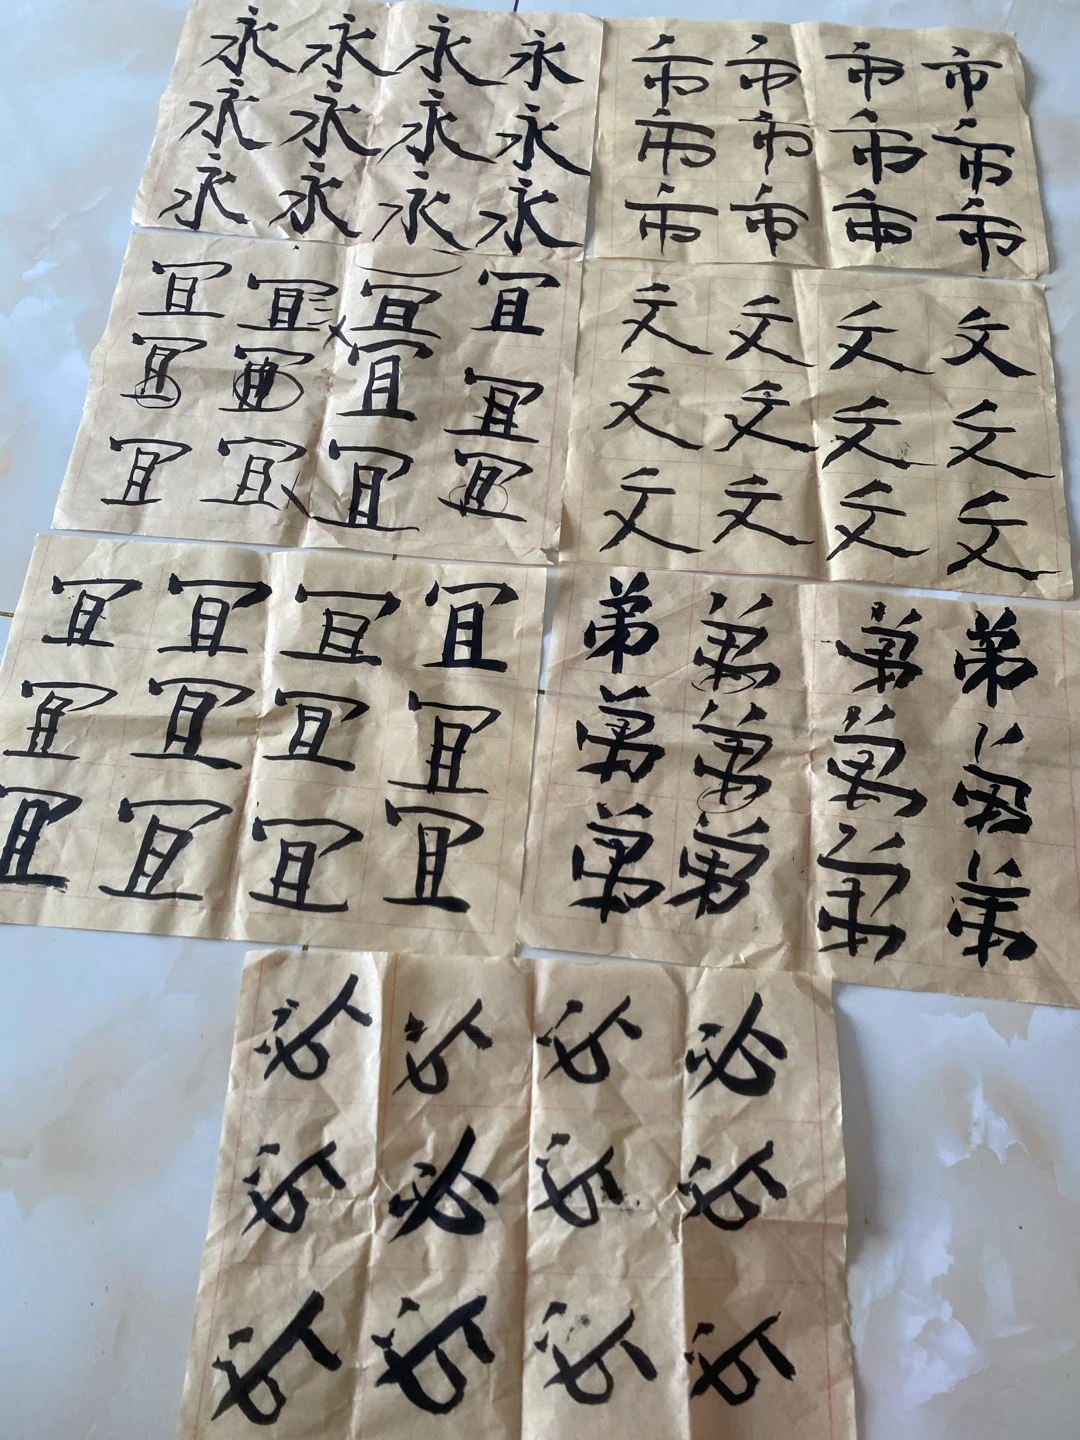 永 永 永 永
永 永 永 永
永 永 永 永
市 市 市 市
市 市 市 市
市 市 市 市
宜 宜 宜 宜
宜 宜 宜 宜
宜 宜 宜 宜
文 文 文 文
文 文 文 文
文 文 文 文
宜 宜 宜 宜
宜 宜 宜 宜
宜 宜 宜 宜
弟 弟 弟 弟
弟 弟 弟 弟
弟 弟 弟 弟
必 必 必 必
必 必 必 必
必 必 必 必